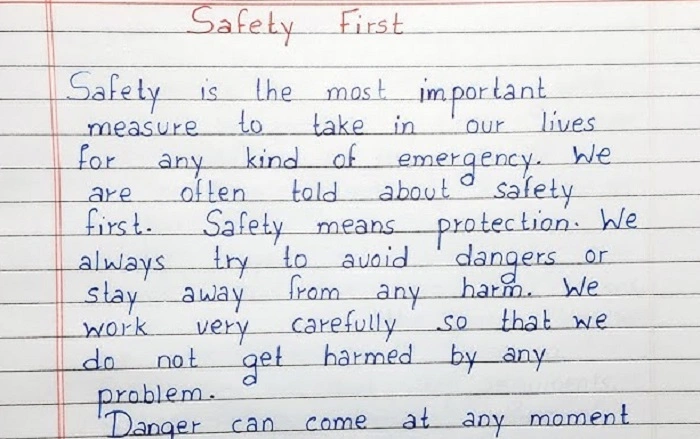 Safety First
Safety is the most important
measure to take in our lives
for any kind of emergency. We
are often told about safety
first. Safety means protection. We
always try to avoid dangers or
stay away from any harm. We
work very carefully so that we
do not get harmed by any
problem.
Danger can come at any moment